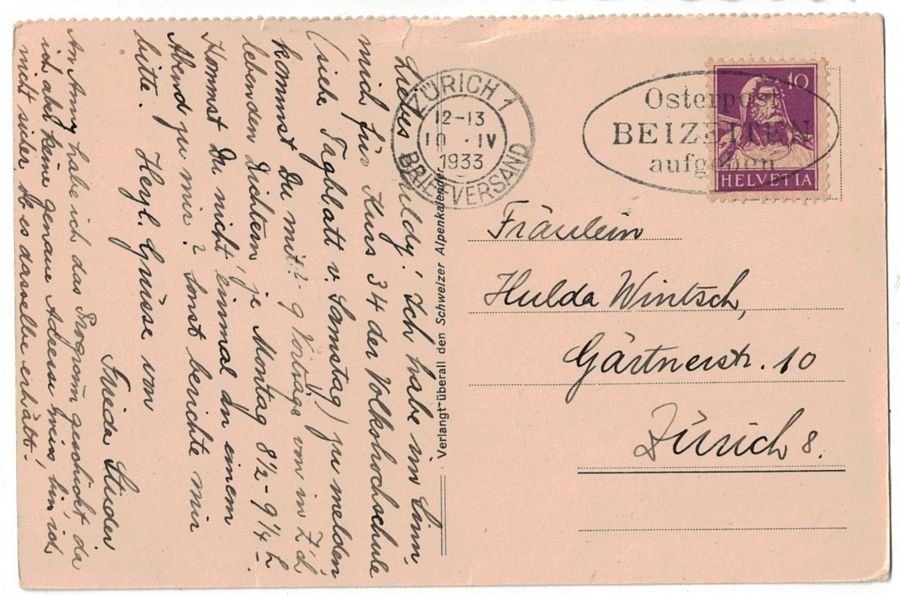 Liebes Huldy! Ich habe im Sinn
mich für Kurs 34 der Volkshochschule
(siehe Tagblatt v. Samstag) zu melden
kommst Du mit? 9 Vorträge von in Z'ch
lebenden Dichtern, je Montag 8½-9¼ h
Kommst Du nicht einmal an einem
Abend zu mir? Sonst berichte mir
bitte. Herzl. Grüsse von
Frieda Studer
An Anny habe ich das Programm geschickt da
ich aber keine genaue Adresse weiss, bin ich
nicht sicher ob es dasselbe erhält!
Verlangt überall den Schweizer Alpenkalender
ZÜRICH 1
12-13
10. IV
1933
BRIEFVERSAND
Osterpost
BEIZEITEN
aufgeben
10
HELVETIA
Fräulein
Hulda Wintsch,
Gärtnerstr. 10
Zürich 8.